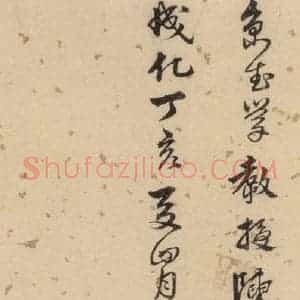 京武学教授陳
成化丁亥夏四月
Shufaziliao.com